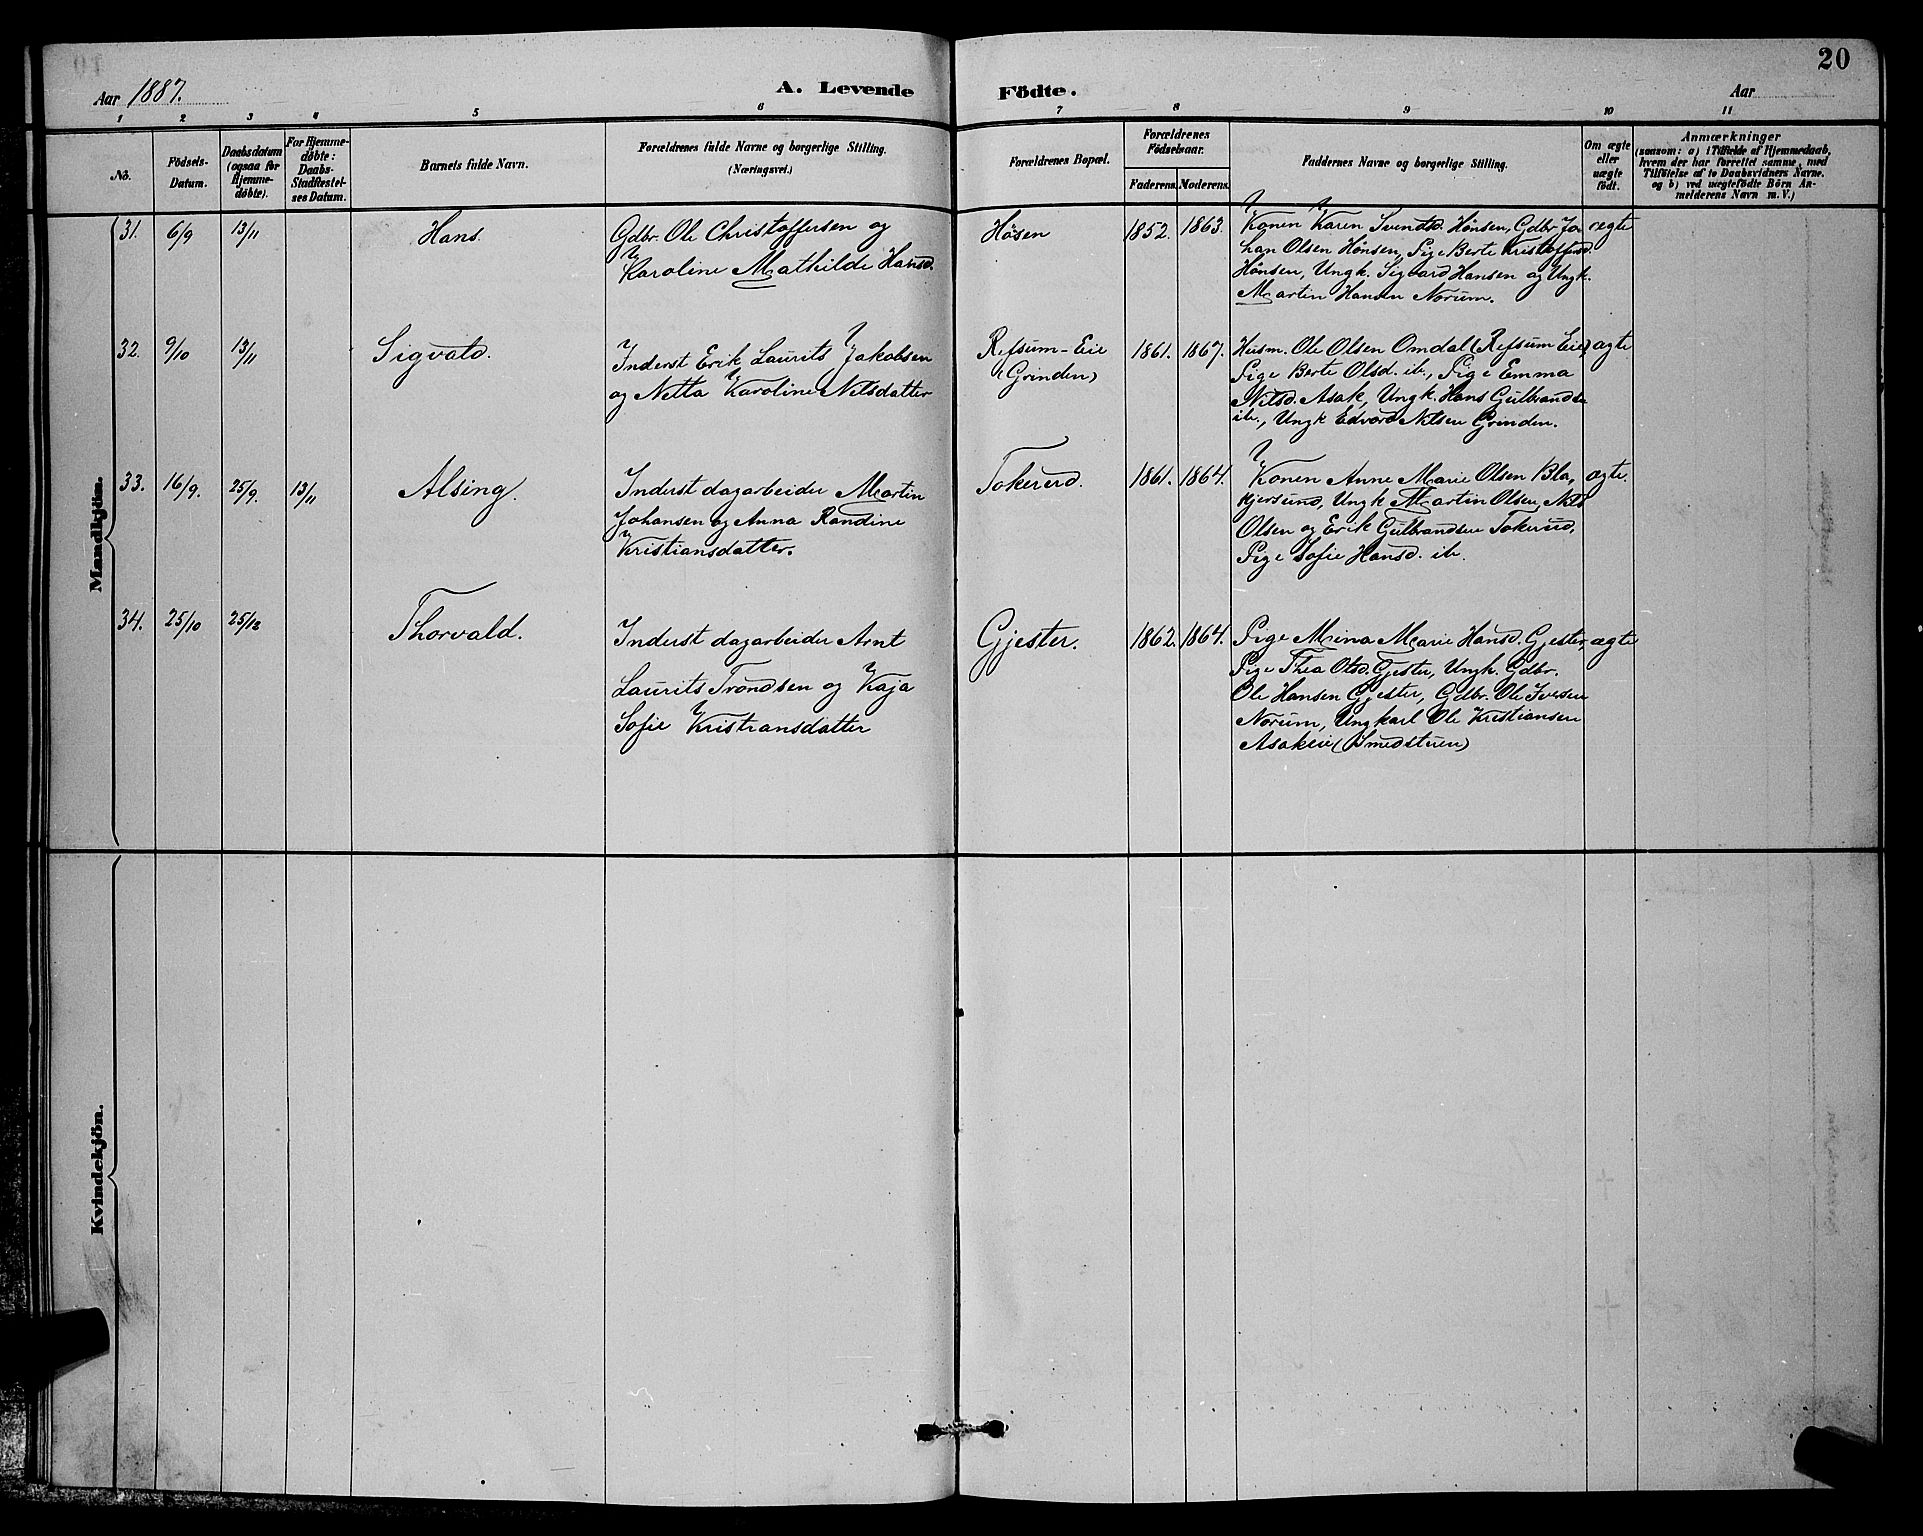 20
Aar 1887.
A. Levende Födte.
Aar
1 2 3 4 5 6 7 8 9 10 11
No.
Födsels-
Datum.
Daabsdatum
(ogsaa for
Hjemme-
döbte).
For Hjemme-
döbte:
Daabs-
Stadfæstel-
ses Datum.
Barnets fulde Navn.
Forældrenes fulde Navne og borgerlige Stilling.
(Næringsvei.)
Forældrenes Bopæl.
Forældrenes
Födselsaar.
Faderens. Moderens.
Faddernes Navne og borgerlige Stilling.
Om ægte
eller
uægte
födt.
Anmærkninger
(saasom: a) i Tilfælde af Hjemmedaab,
hvem der har forrettet samme, med
Tilföielse af to Daabsvidners Navne,
og b) ved uægtefödte Börn An-
melderens Navn m.V.)
Mandkjön.
31. 6/9 13/11
Hans.
Gdbr. Ole Christoffersen og
Karoline Mathilde Hansd.
Høsen
1852. 1863.
Konen Karen Svendsd. Hønsen, Gdbr Jo
han Olsen Hønsen, Pige Berte Kristoffersd.
Hønsen, Ungk. Sigvard Hansen og Ungk.
Martin Hansen Norum.
ægte
32. 9/10 13/11
Sigvald.
Inderst Erik Laurits Jakobsen
og Netta Karoline Nilsdatter
Refsum-Eie
(Grinden)
1861. 1867.
Husm. Ole Olsen Omdal (Refsum Eie)
Pige Berte Olsd. ib., Pige Emma
Nilsd. Asak, Ungk. Hans Gulbrandsen
ib., Ungk Edvard Nilsen Grinden.
ægte
33. 16/9. 25/9. 13/11
Alsing.
Inderst dagarbeider Martin
Johansen og Anna Randine
Kristiansdatter.
Tokerud.
1861. 1864.
Konen Anne Marie Olsen Bla,
kjersund, Ungk Martin Olsen, Nils
Olsen og Erik Gulbrandsen Tokerud,
Pige Sofie Hansd. ib.
ægte.
34. 25/10 25/12
Thorvald.
Inderst dagarbeider Arnt
Laurits Trondsen og Kaja
Sofie Kristiansdatter
Gjester.
1862. 1864.
Pige Mina Marie Hansd. Gjester,
Pige Thea Olsd. Gjester, Ungk. Gdbr.
Ole Hansen Gjester, Gdbr. Ole Iversen
Norum, Ungkarl Ole Kristiansen
Asakeie (Smedstuen)
ægte
Kvindekjön.